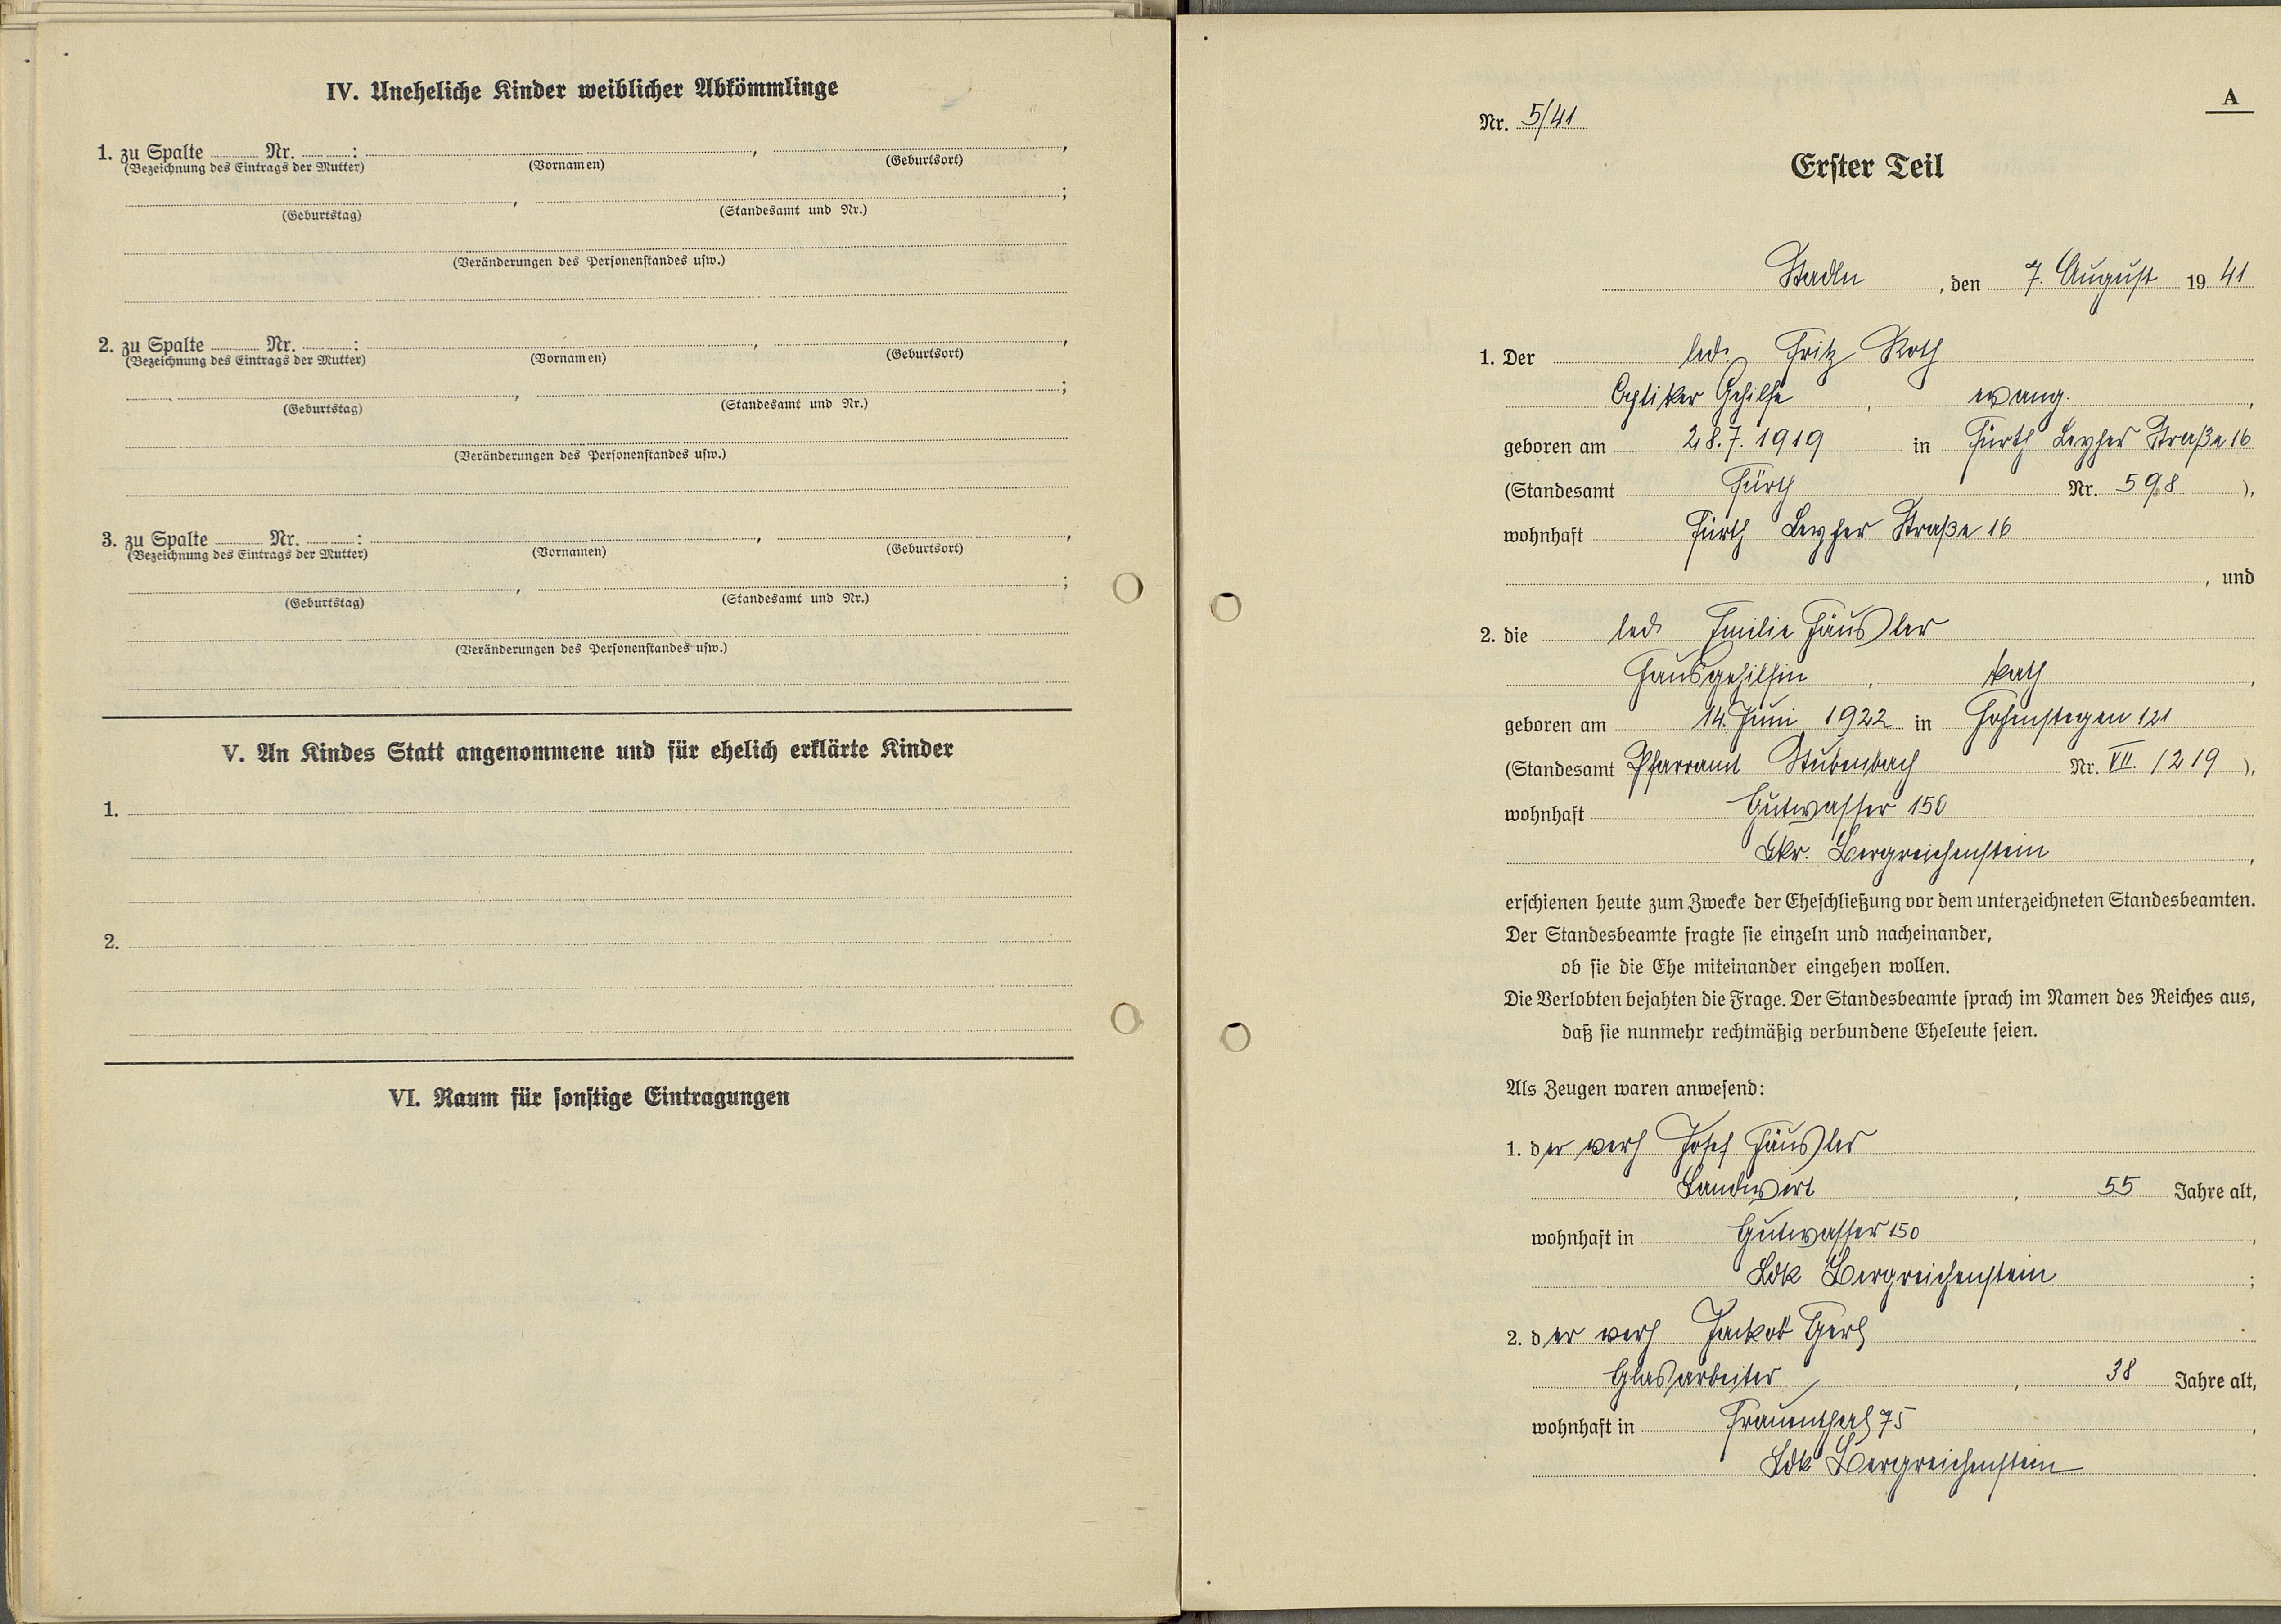 IV. Uneheliche Kinder weiblicher Abkömmlinge
1. zu Spalte ........ Nr. ........: ........, ........,
(Bezeichnung des Eintrags der Mutter) (Vornamen) (Geburtsort)
........, ........;
(Geburtstag) (Standesamt und Nr.)
(Veränderungen des Personenstandes usw.)
2. zu Spalte ........ Nr. ........: ........, ........,
(Bezeichnung des Eintrags der Mutter) (Vornamen) (Geburtsort)
........, ........;
(Geburtstag) (Standesamt und Nr.)
(Veränderungen des Personenstandes usw.)
3. zu Spalte ........ Nr. ........: ........, ........,
(Bezeichnung des Eintrags der Mutter) (Vornamen) (Geburtsort)
........, ........;
(Geburtstag) (Standesamt und Nr.)
(Veränderungen des Personenstandes usw.)
V. An Kindes Statt angenommene und für ehelich erklärte Kinder
1.
2.
VI. Raum für sonstige Eintragungen
A
Nr. 5/41
Erster Teil
Stadln, den 7. August 1941
1. Der led. Fritz Roth
Optiker Gehilfe, evang.,
geboren am 28.7.1919 in Fürth Leyher Straße 16
(Standesamt Fürth Nr. 598),
wohnhaft Fürth Leyher Straße 16
, und
2. die led. Emilie Häusler
Hausgehilfin, kath,
geboren am 14. Juni 1922 in Hohenstegen 121
(Standesamt Pfarramt Stubenbach Nr. VII. /219),
wohnhaft Gutwasser 150
Lkr. Bergreichenstein,
erschienen heute zum Zwecke der Eheschließung vor dem unterzeichneten Standesbeamten.
Der Standesbeamte fragte sie einzeln und nacheinander,
ob sie die Ehe miteinander eingehen wollen.
Die Verlobten bejahten die Frage. Der Standesbeamte sprach im Namen des Reiches aus,
daß sie nunmehr rechtmäßig verbundene Eheleute seien.
Als Zeugen waren anwesend:
1. der verh Josef Häusler
Landwirt, 55 Jahre alt,
wohnhaft in Gutwasser 150,
Ldk Bergreichenstein;
2. der verh Jackob Gerl
Glasarbeiter, 38 Jahre alt,
wohnhaft in Frauenthal 75,
Ldk Bergreichenstein.